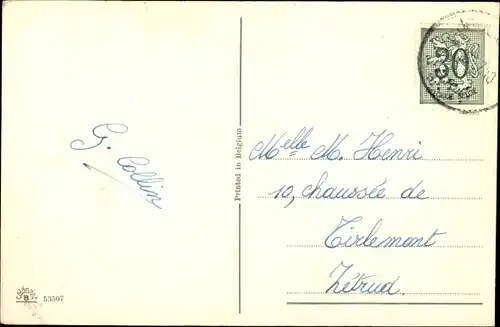 30
G. Collin
Printed in Belgium
Melle M. Henri
10, chaussée de
Tirlemont
Zétrud.
B
53507